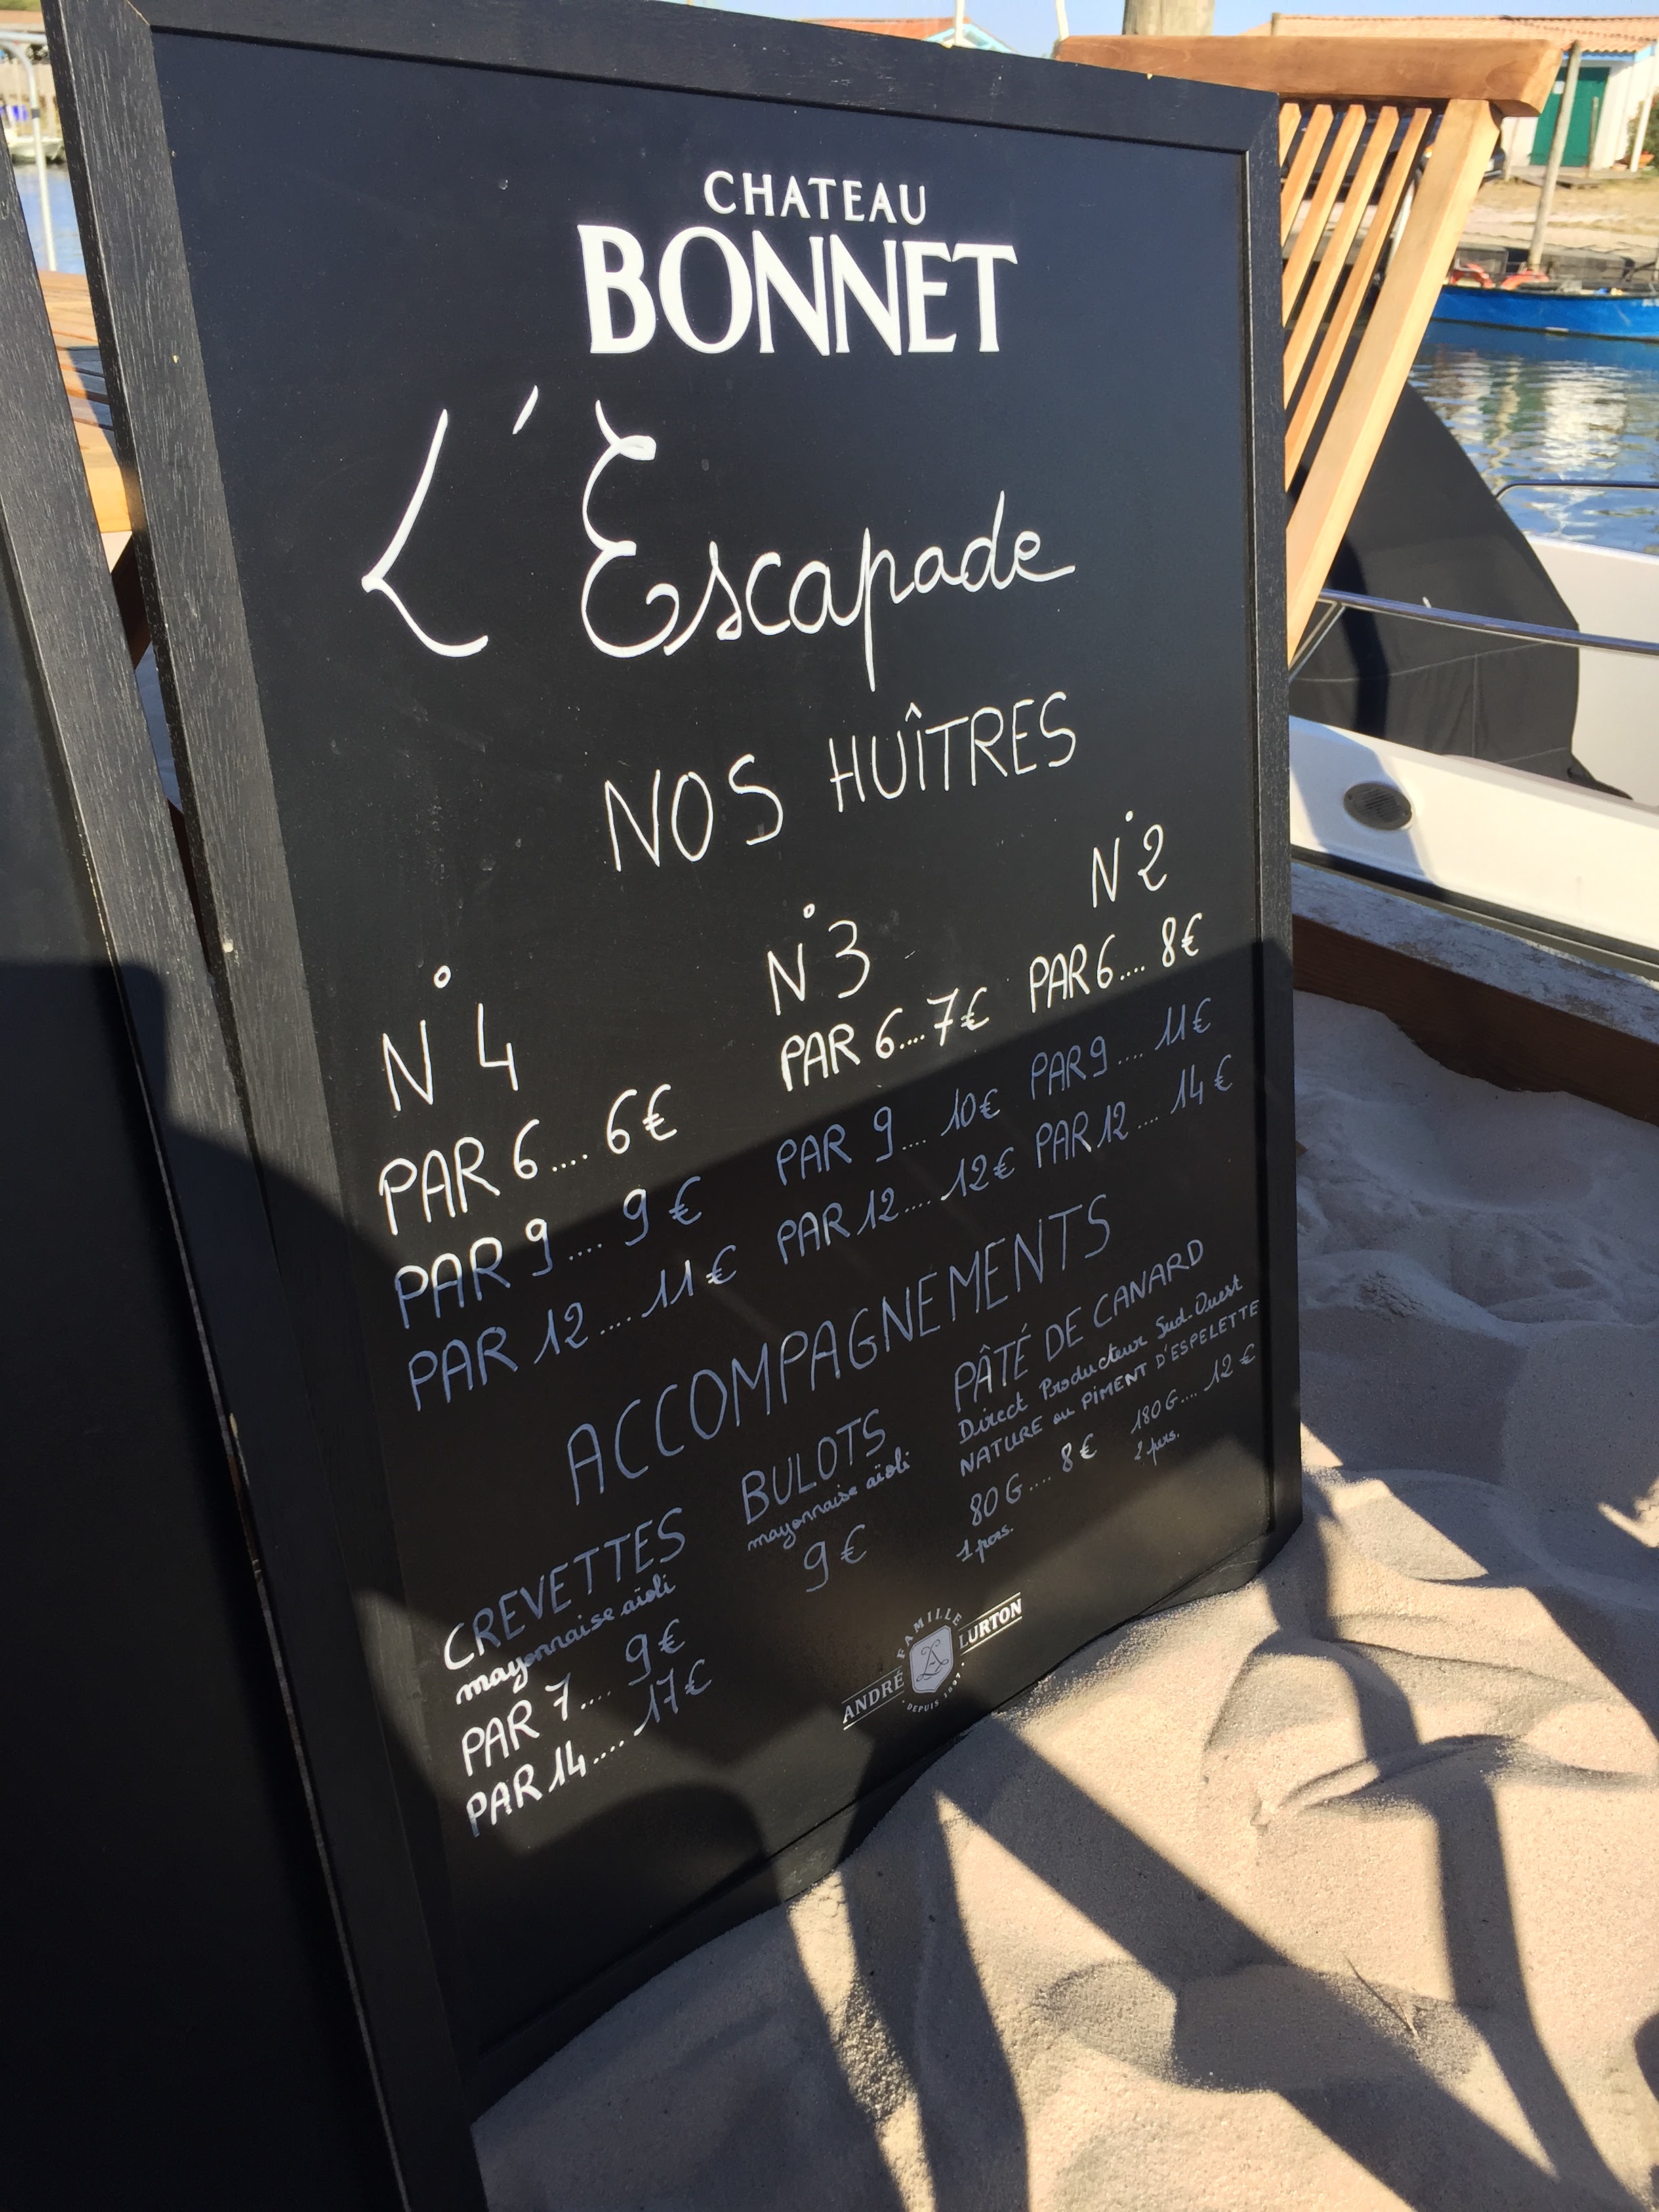 CHATEAU
BONNET
L'Escapade
NOS HUÎTRES
N°4
PAR 6.... 6€
PAR 9.... 9€
PAR 12.... 11€
N°3
PAR 6.... 7€
PAR 9.... 10€
PAR 12.... 12€
N°2
PAR 6.... 8€
PAR 9.... 11€
PAR 12.... 14€
ACCOMPAGNEMENTS
CREVETTES
mayonnaise aïoli
PAR 7.... 9€
PAR 14.... 17€
BULOTS
mayonnaise aïoli
9€
PÂTÉ DE CANARD
Direct Producteur Sud-Ouest
NATURE ou PIMENT D'ESPELETTE
80G.... 8€
1 pers.
180G.... 12€
2 pers.
FAMILLE
ANDRÉ LURTON
DEPUIS 1897